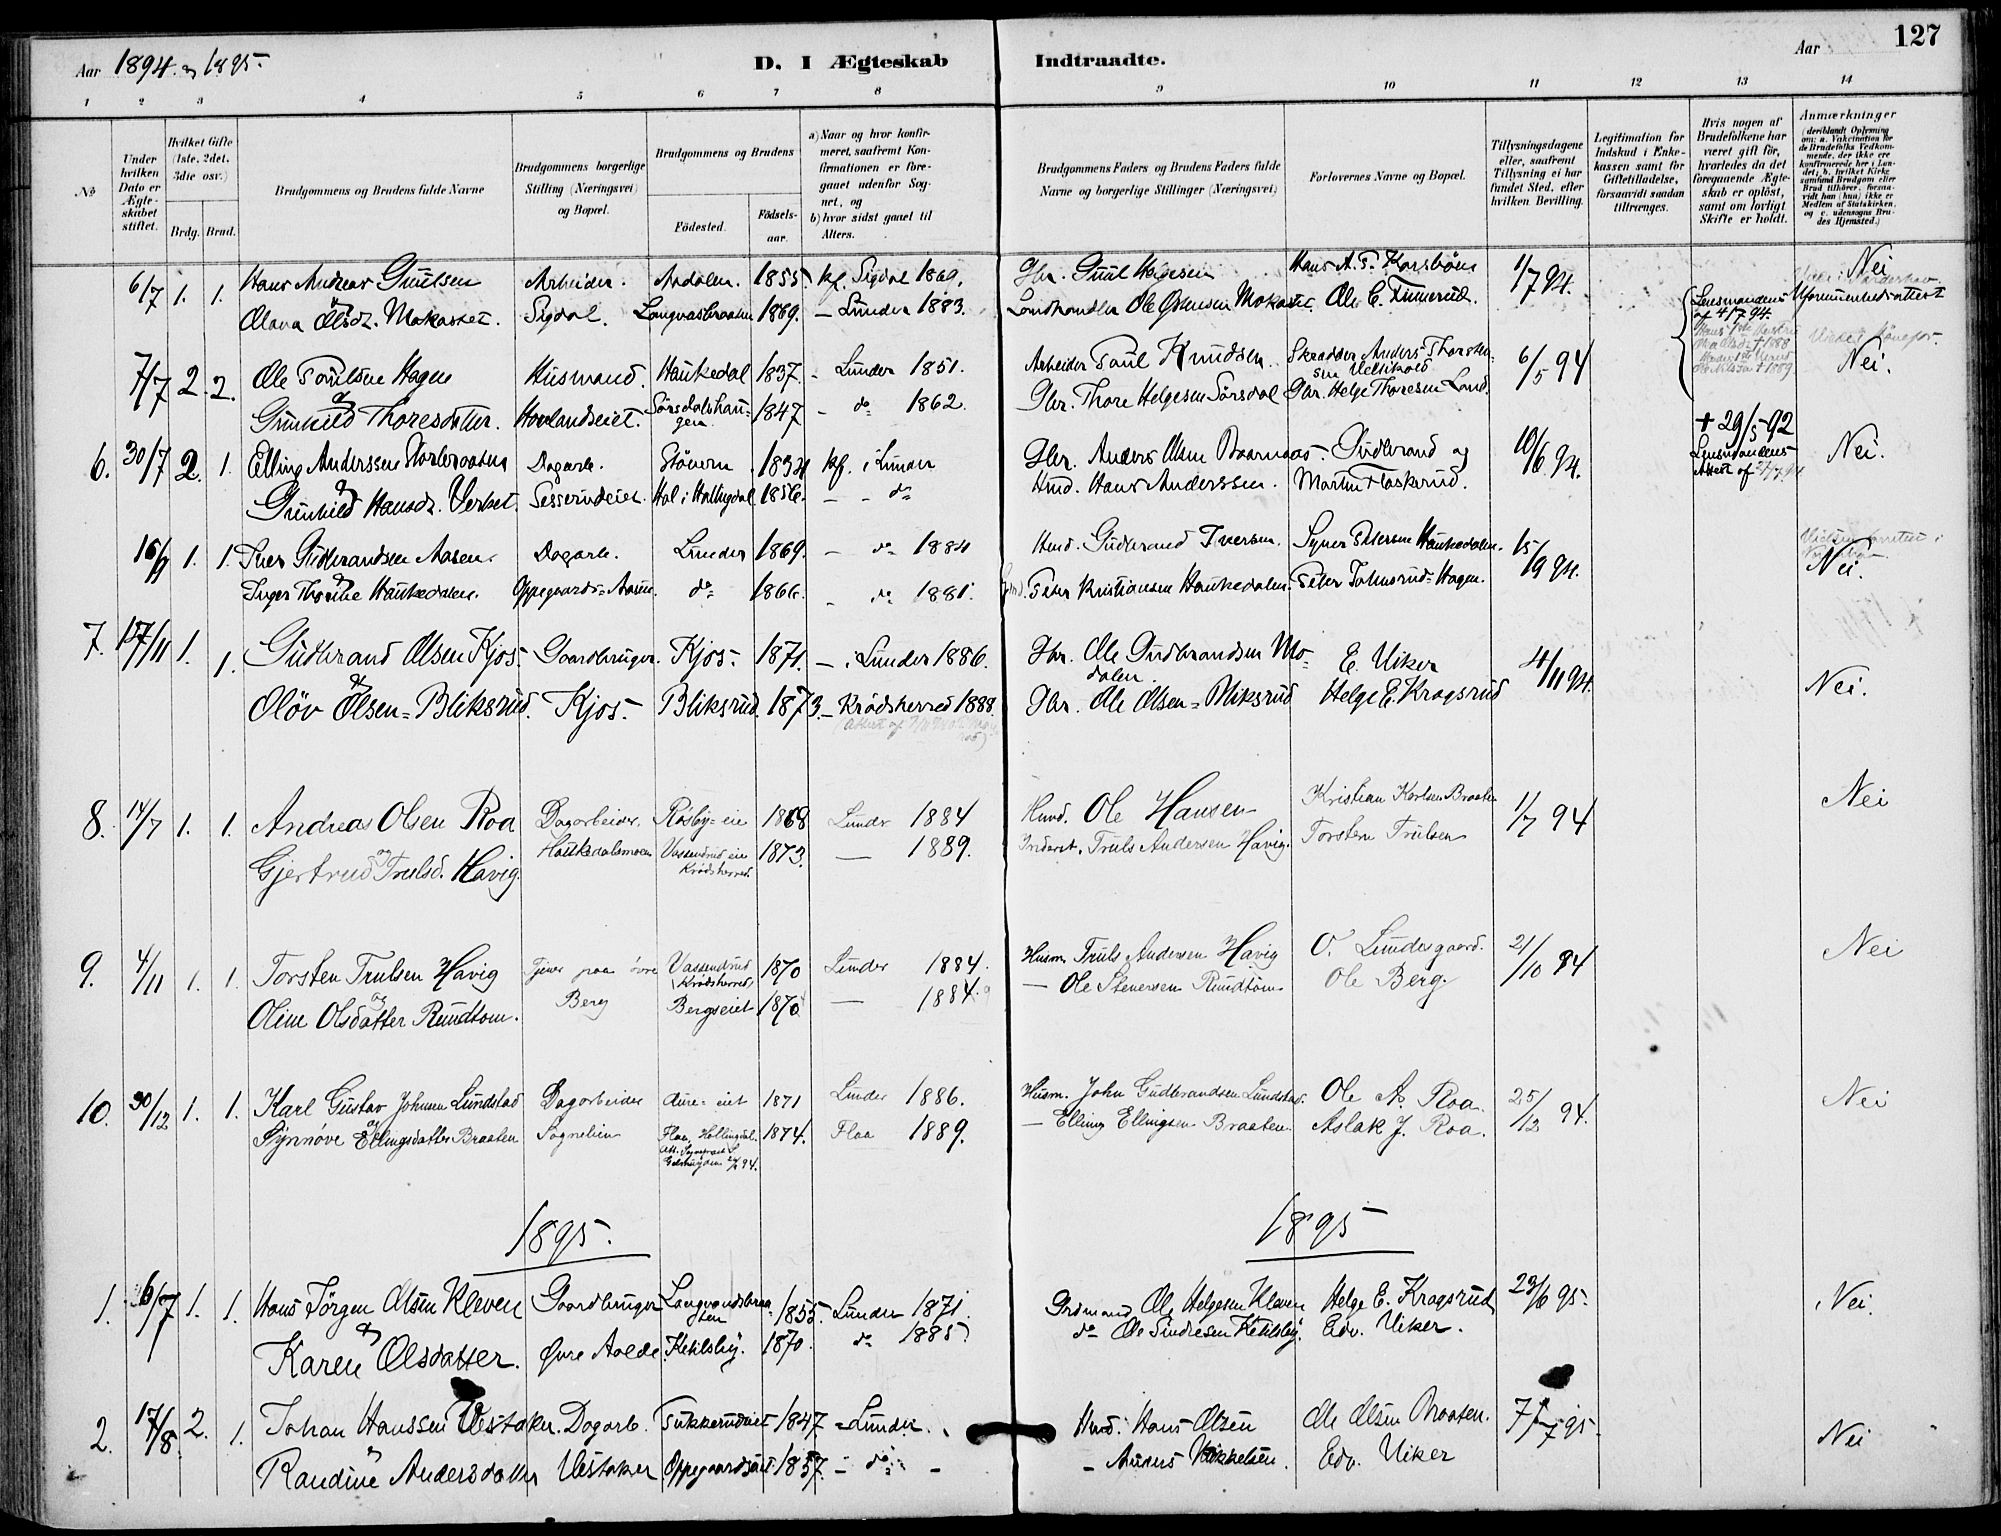 Aar 1894 og 1895.
D. I Ægteskab Indtraadte.
Aar 127
1 2 3 4 5 6 7 8 9 10 11 12 13 14
No
Under hvilken Dato er Ægteskabet stiftet.
Hvilket Gifte (1ste, 2det, 3die osv.)
Brdg. Brud.
Brudgommens og Brudens fulde Navne
Brudgommens borgerlige Stilling (Næringsvei) og Bopæl.
Brudgommens og Brudens
Födested. Födselsaar.
a) Naar og hvor konfirmeret, saafremt Konfirmationen er foregaaet udenfor Sognet, og
b) hvor sidst gaaet til Alters.
Brudgommens Faders og Brudens Faders fulde Navne og borgerlige Stillinger (Næringsvei)
Forlovernes Navne og Bopæl.
Tillysningsdagene eller, saafremt Tillysning ei har fundet Sted, efter hvilken Bevilling.
Legitimation for Indskud i Enkekassen samt for Giftetilladelse, forsaavidt saadan tiltrænges.
Hvis nogen af Brudefolkene har været gift för, hvorledes da det foregaaende Ægteskab er oplöst, samt om lovligt Skifte er holdt.
Anmærkninger (deriblandt Oplysning om: a. Vakcination for de Brudefolks Vedkommende, der ikke ere konfirmerede her i Landet; b. hvilket Kirkesamfund Brudgom eller Brud tilhörer, forsaavidt han (hun) ikke er Medlem af Statskirken, og c. udensogns Brudes Hjemsted.)
6/7 1. 1. Hans Andreas Guulsen Arbeider. Aadalen. 1855. kf. Sigdal 1869. Gbr. Guul Helgesen Hans A. P. Karsbön 1/7 94. Nei
og
Olava Olsdt. Mokastet. Sigdal. Langvasbraaten 1869. — Lunder 1883. Landhandler Ole Mokastet. Ole C. Finnerud. Lensmandens af 4/7 94.
7/7 2. 2. Ole Paulsen Hagen Husmand. Haukedal 1837. - Lunder 1851. Arbeider Paul Knudsen. Skrædder Anders Thorstensen 6/5 94 Nei.
og
Gunhild Thoresdatter. Hovlandseiet. Sörsdalshaugen 1847 — do 1862. Gbr. Thore Helgesen Sörsdal Gbr. Helge Thoresen Land.
6. 30/7 2. 1. Elling Anderssen Storbraaten Dagarb. Stövern 1834 kf. i Lunder Gbr. Anders Olsen Gudbrand og 10/6 94. + 29/5 92 Lensmandens Attest af Nei.
og
Gunhild Hansdt. Verket. Sesserudeiet. Hol i Hallingdal 1856. — - do Hmd. Hans Anderssen. Martin Flaskerud.
16/9 1. 1. Iver Gudbrandsen Aasen. Dagarb. Lunder 1869. — do 1884 Hmd. Gudbrand Iversen. Syver Petersen Haukedalen. 15/9 94. Nei.
og
Inger Thorine Haukedalen. Oppegaards-Aasen. do 1866. — do 1881. Hmd. Peter Kristiansen Haukedalen. Peter Johnsrud-Hagen.
7. 17/11 1. 1. Gudbrand Olsen Kjos. Gaardbruger. Kjos. 1871. — i Lunder 1886. Gbr. Ole Gudbrandsen Modalen. E. Viker 4/11 94. Nei.
og
Olöv Olsen-Bliksrud. Kjos. Bliksrud. 1873. — Krödsherred 1888. Gbr. Ole Olsen-Bliksrud Helge E. Kragsrud
8. 14/7 1. 1. Andreas Olsen Roa Dagarbeider. Rösby-eie 1868 Lunder 1884 Hmd. Ole Hansen Kristian Karlsen Braaten 1/7 94 Nei
og
Gjertrud Trulsd. Havig. Haukedalsmoen Vassendrud eie Krödsherred. 1873. — 1889. Inderst. Truls Andersen Havig. Torsten Trulsen
9. 4/11 1. 1. Torsten Trulsen Havig Tjener paa övre Vassendrud Krödsherred, 1870 Lunder 1884. Husm. Truls Andersen Havig O. Lundesgaard. 21/10 94 Nei
og
Oline Olsdatter Rundtom. Berg Bergseiet 1870 — 1884. — Ole Stenersen Rundtom. Ole Berg.
10. 30/12 1. 1. Karl Gustav Johnsen Lundstad Dagarbeider Aure-eiet 1871 Lunder 1886. Husm. John Gudbrandsen Lundstad. Ole A. Roa. 25/12 94. Nei
og
Synnöve Ellingsdatter Braaten Sognelien Flaa, Hallingdal. 1874. Flaa 1889. — Elling Ellingsen Braaten. Aslak J. Roa.
1895. 1895
1. 6/7 1. 1. Hans Jörgen Olsen Kleven Gaardbruger Langvandsbraaten 1855. Lunder 1871. Grdmand Ole Helgesen Kleven Helge E. Kragsrud 23/6 95. Nei.
og
Karen Olsdatter. Övre Aolde. Ketilsby. 1870. do 1885 do Ole Sindresen Ketilsby. Edv. Viker.
2. 17/8 2. 1. Johan Hanssen Vestaker. Dagarb. Tukkerudeiet 1847 - Lunder. Hmd. Hans Olsen Ole Olsen Braaten. 7/7 95. Nei
og
Randine Andersdatter Vestaker Oppegaardseiet 1857 — do — - Anders Mikkelsen. Edv. Viker